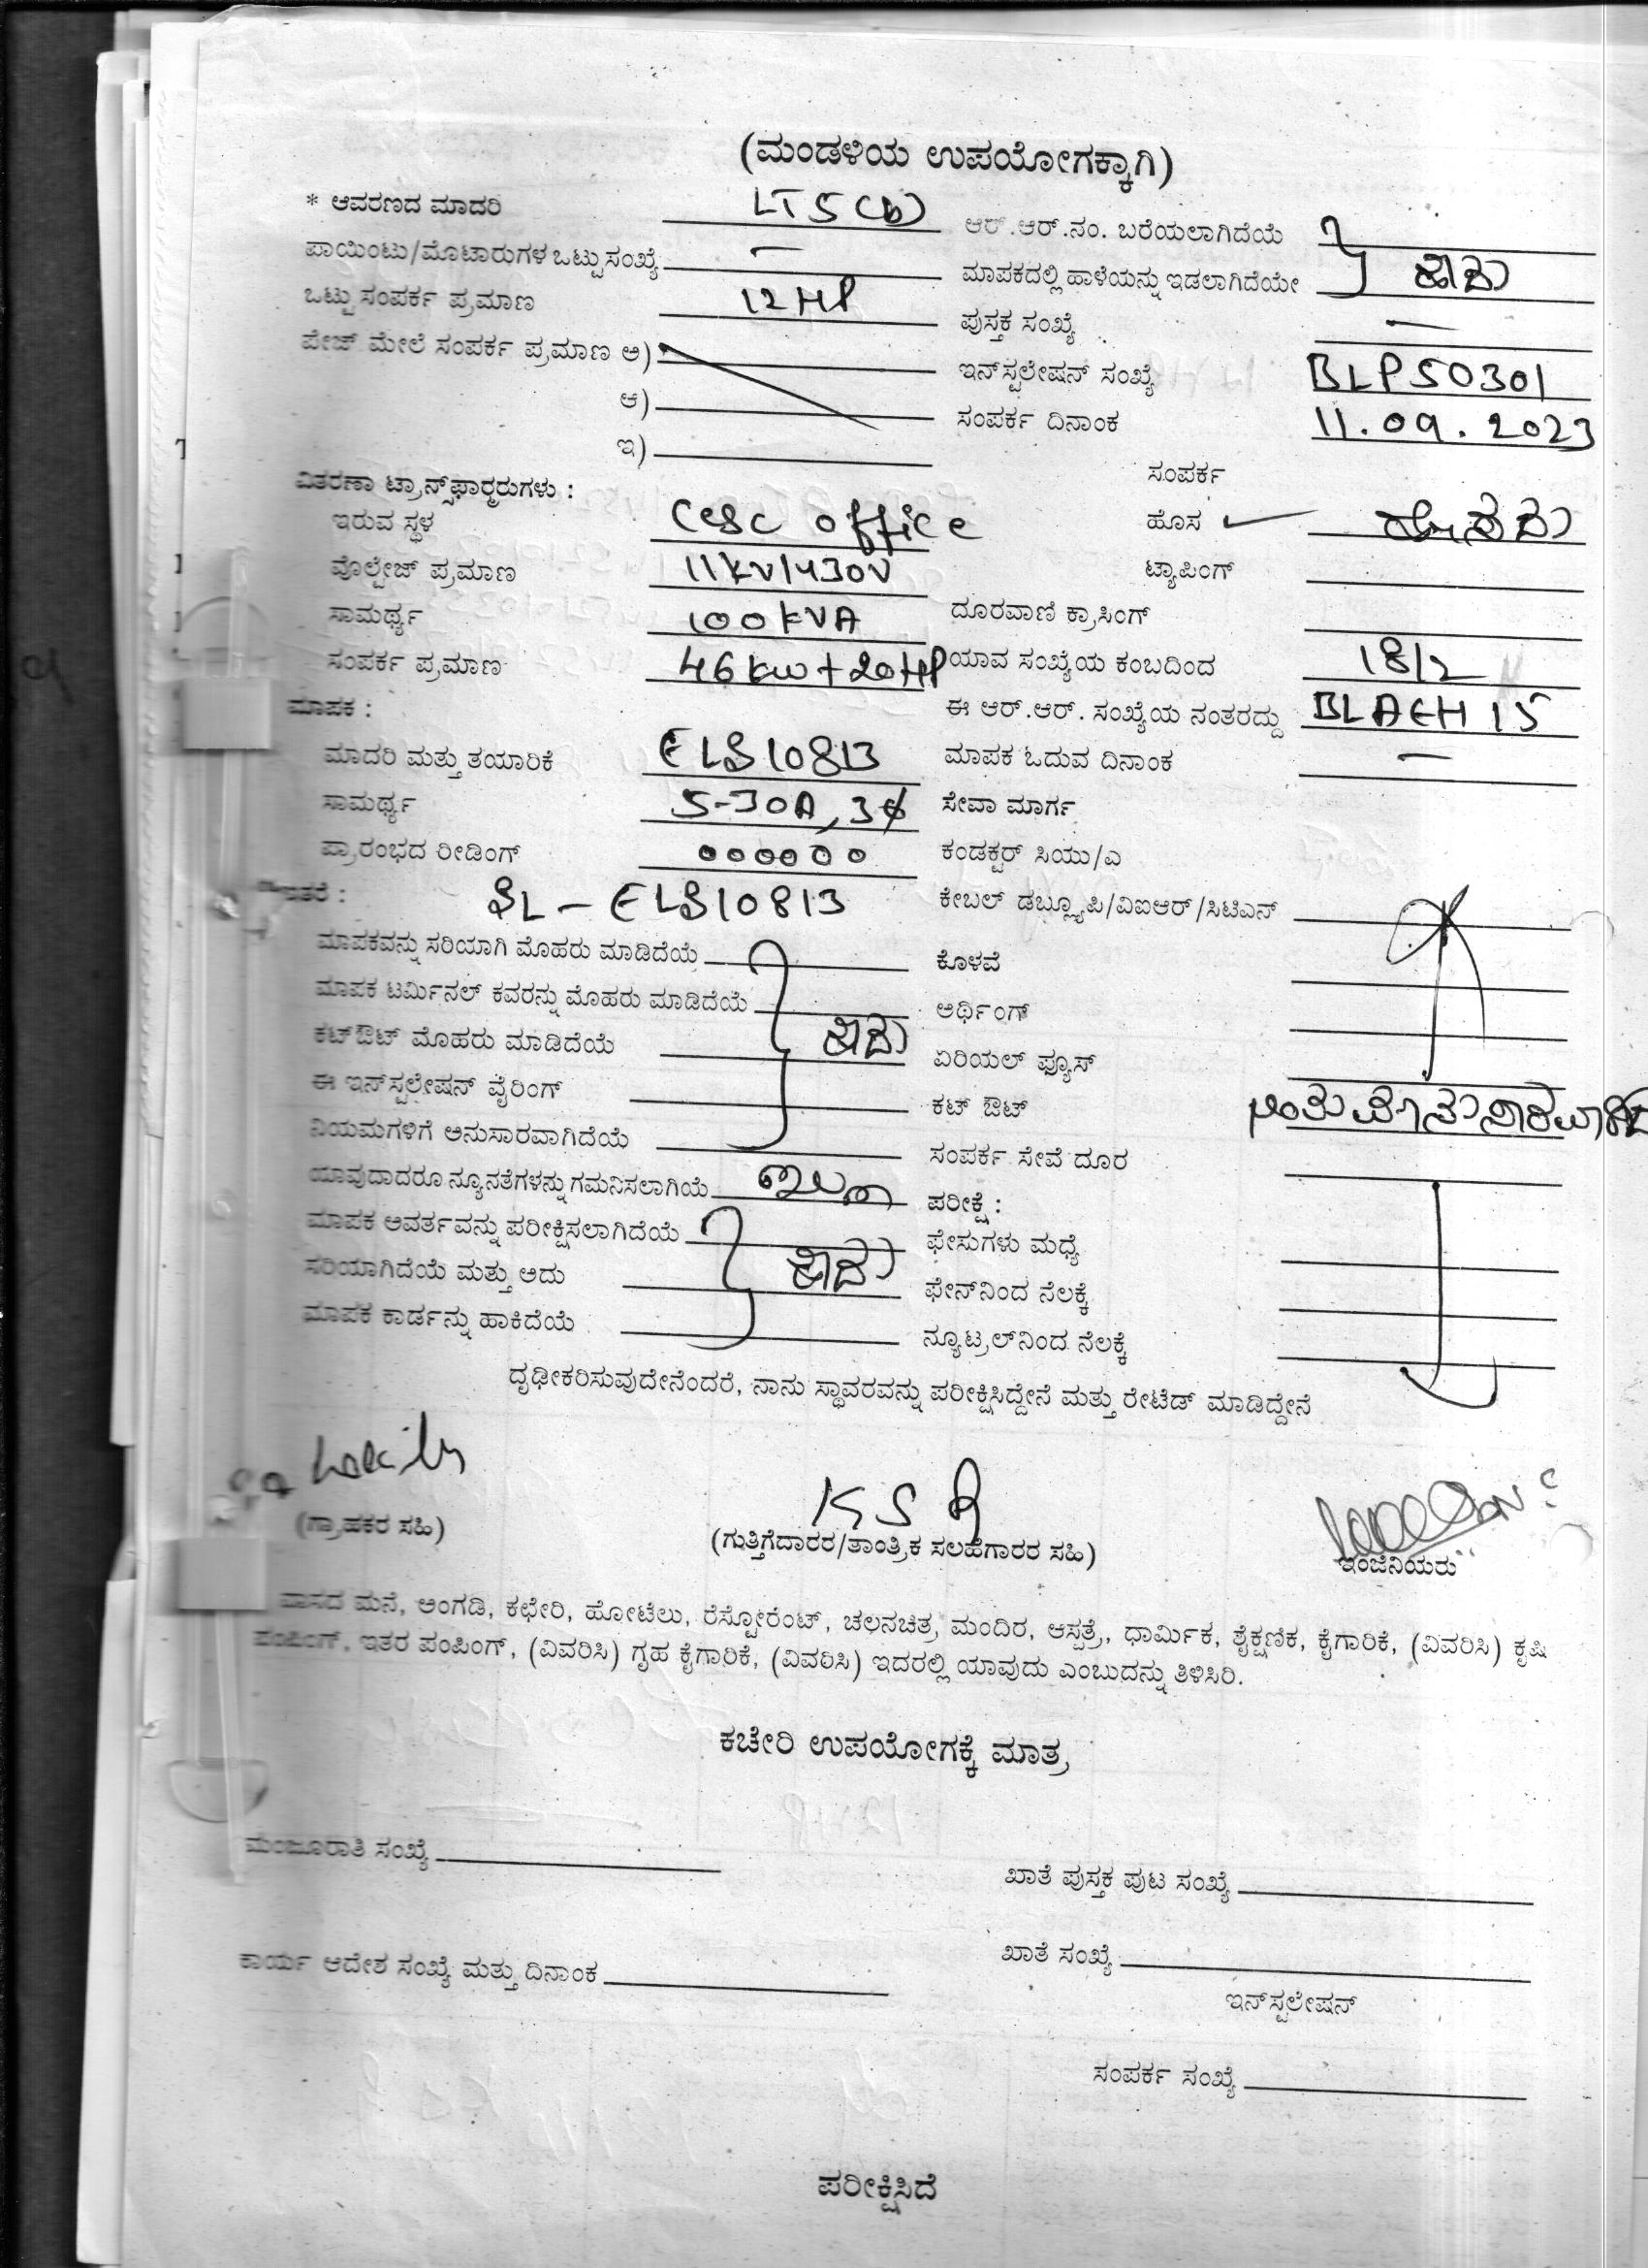 (ಮಂಡಳಿಯ ಉಪಯೋಗಕ್ಕಾಗಿ)
* ಆವರಣದ ಮಾದರಿ LT5(b)
ಪಾಯಿಂಟು/ಮೊಟಾರುಗಳ ಒಟ್ಟು ಸಂಖ್ಯೆ —
ಒಟ್ಟು ಸಂಪರ್ಕ ಪ್ರಮಾಣ 12 HP
ಪೇಜ್ ಮೇಲೆ ಸಂಪರ್ಕ ಪ್ರಮಾಣ ಅ)
ಆ)
ಇ)
ವಿತರಣಾ ಟ್ರಾನ್ಸ್‌ಫಾರ್‍ಮರುಗಳು :
ಇರುವ ಸ್ಥಳ CESC office
ವೊಲ್ಟೇಜ್ ಪ್ರಮಾಣ 11KV/430V
ಸಾಮರ್ಥ್ಯ 100KVA
ಸಂಪರ್ಕ ಪ್ರಮಾಣ 46kw+20HP
ಮಾಪಕ :
ಮಾದರಿ ಮತ್ತು ತಯಾರಿಕೆ ELS10813
ಸಾಮರ್ಥ್ಯ 5-30A, 3ϕ
ಪ್ರಾರಂಭದ ರೀಡಿಂಗ್ 000000
ಇತರೆ : SL - ELS10813
ಮಾಪಕವನ್ನು ಸರಿಯಾಗಿ ಮೊಹರು ಮಾಡಿದೆಯೆ
ಮಾಪಕ ಟರ್ಮಿನಲ್ ಕವರನ್ನು ಮೊಹರು ಮಾಡಿದೆಯೆ
ಕಟ್‌ಔಟ್ ಮೊಹರು ಮಾಡಿದೆಯೆ ಹೌದು
ಈ ಇನ್‌ಸ್ಟಲೇಷನ್ ವೈರಿಂಗ್
ನಿಯಮಗಳಿಗೆ ಅನುಸಾರವಾಗಿದೆಯೆ
ಯಾವುದಾದರೂ ನ್ಯೂನತೆಗಳನ್ನು ಗಮನಿಸಲಾಗಿಯೆ ಇಲ್ಲ
ಮಾಪಕ ಅವರ್ತವನ್ನು ಪರೀಕ್ಷಿಸಲಾಗಿದೆಯೆ
ಸರಿಯಾಗಿದೆಯೆ ಮತ್ತು ಅದು ಹೌದು
ಮಾಪಕ ಕಾರ್ಡನ್ನು ಹಾಕಿದೆಯೆ
ಆರ್.ಆರ್.ನಂ. ಬರೆಯಲಾಗಿದೆಯೆ
ಮಾಪಕದಲ್ಲಿ ಹಾಳೆಯನ್ನು ಇಡಲಾಗಿದೆಯೇ ಹೌದು
ಪುಸ್ತಕ ಸಂಖ್ಯೆ —
ಇನ್‌ಸ್ಟಲೇಷನ್ ಸಂಖ್ಯೆ BLP50301
ಸಂಪರ್ಕ ದಿನಾಂಕ 11.09.2023
ಸಂಪರ್ಕ
ಹೊಸ ✓ ಹೊಸದು
ಟ್ಯಾಪಿಂಗ್
ದೂರವಾಣಿ ಕ್ರಾಸಿಂಗ್
ಯಾವ ಸಂಖ್ಯೆಯ ಕಂಬದಿಂದ 18/2
ಈ ಆರ್.ಆರ್. ಸಂಖ್ಯೆಯ ನಂತರದ್ದು BLAEH 15
ಮಾಪಕ ಓದುವ ದಿನಾಂಕ —
ಸೇವಾ ಮಾರ್ಗ
ಕಂಡಕ್ಟರ್ ಸಿಯು/ಎ
ಕೇಬಲ್ ಡಬ್ಲ್ಯೂಪಿ/ವಿಐಆರ್/ಸಿಟಿಎನ್
ಕೊಳವೆ
ಅರ್ಥಿಂಗ್
ಏರಿಯಲ್ ಫ್ಯೂಸ್
ಕಟ್ ಔಟ್
ಸಂಪರ್ಕ ಸೇವೆ ದೂರ
ಪರೀಕ್ಷೆ :
ಫೇಸುಗಳು ಮಧ್ಯೆ
ಫೇನ್‌ನಿಂದ ನೆಲಕ್ಕೆ
ನ್ಯೂಟ್ರಲ್‌ನಿಂದ ನೆಲಕ್ಕೆ
ದೃಢೀಕರಿಸುವುದೇನೆಂದರೆ, ನಾನು ಸ್ಥಾವರವನ್ನು ಪರೀಕ್ಷಿಸಿದ್ದೇನೆ ಮತ್ತು ರೇಟೆಡ್ ಮಾಡಿದ್ದೇನೆ
(ಗ್ರಾಹಕರ ಸಹಿ)
(ಗುತ್ತಿಗೆದಾರರ/ತಾಂತ್ರಿಕ ಸಲಹೆಗಾರರ ಸಹಿ)
ಇಂಜಿನಿಯರು
ವಾಸದ ಮನೆ, ಅಂಗಡಿ, ಕಛೇರಿ, ಹೋಟೆಲು, ರೆಸ್ಟೋರೆಂಟ್, ಚಲನಚಿತ್ರ ಮಂದಿರ, ಆಸ್ಪತ್ರೆ, ಧಾರ್ಮಿಕ, ಶೈಕ್ಷಣಿಕ, ಕೈಗಾರಿಕೆ, (ವಿವರಿಸಿ) ಕೃಷಿ
ಪಂಪಿಂಗ್, ಇತರ ಪಂಪಿಂಗ್, (ವಿವರಿಸಿ) ಗೃಹ ಕೈಗಾರಿಕೆ, (ವಿವರಿಸಿ) ಇದರಲ್ಲಿ ಯಾವುದು ಎಂಬುದನ್ನು ತಿಳಿಸಿರಿ.
ಕಚೇರಿ ಉಪಯೋಗಕ್ಕೆ ಮಾತ್ರ
ಮಂಜೂರಾತಿ ಸಂಖ್ಯೆ
ಖಾತೆ ಪುಸ್ತಕ ಪುಟ ಸಂಖ್ಯೆ
ಕಾರ್ಯ ಆದೇಶ ಸಂಖ್ಯೆ ಮತ್ತು ದಿನಾಂಕ
ಖಾತೆ ಸಂಖ್ಯೆ
ಇನ್‌ಸ್ಟಲೇಷನ್
ಸಂಪರ್ಕ ಸಂಖ್ಯೆ
ಪರೀಕ್ಷಿಸಿದೆ